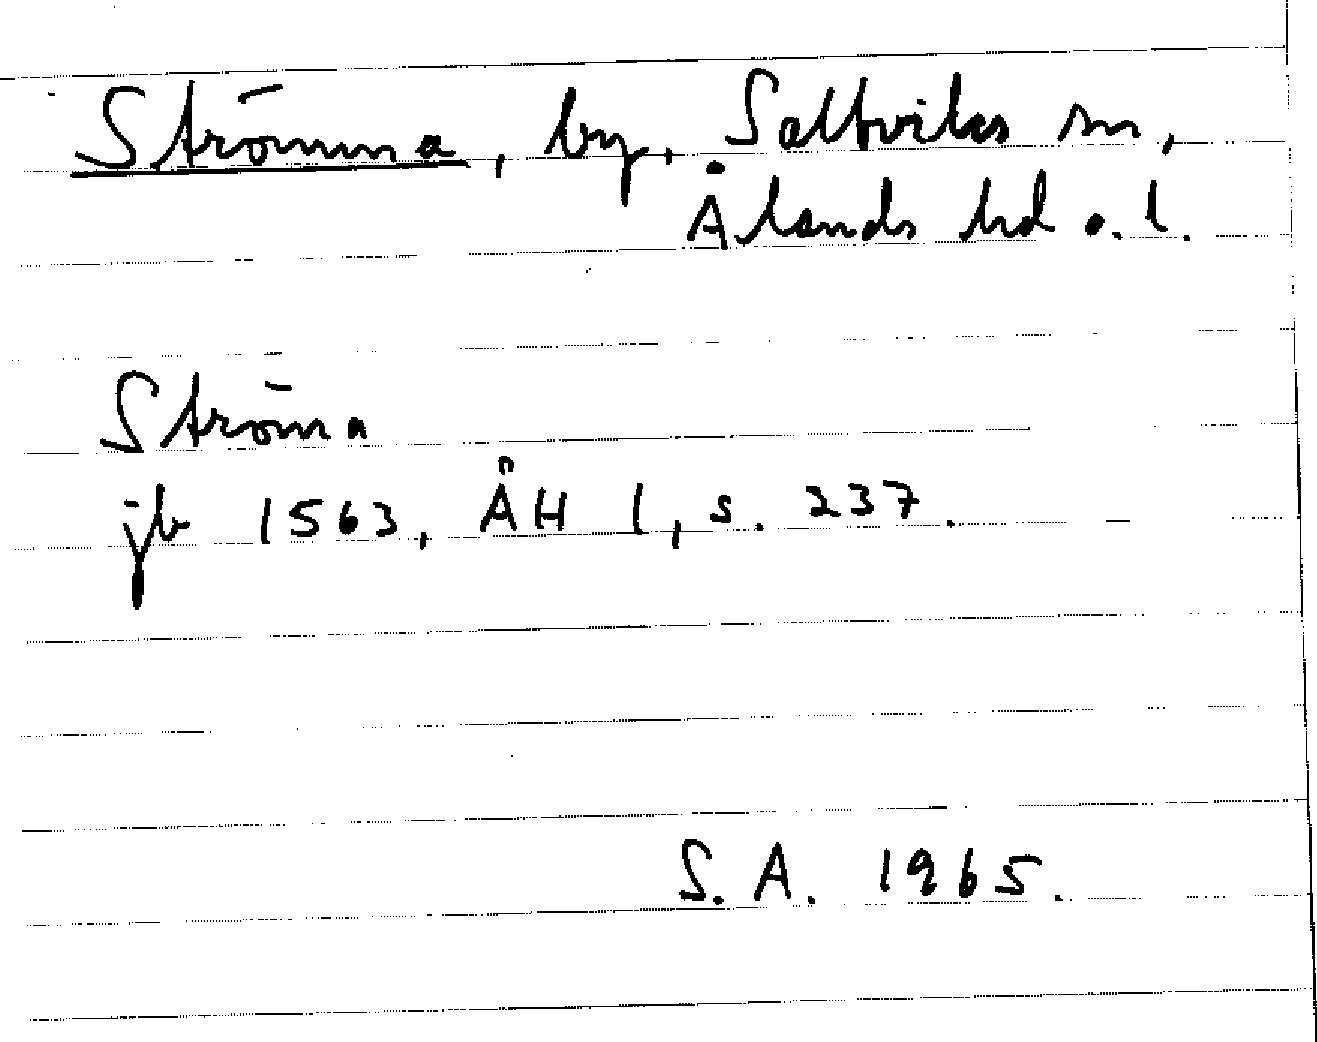 Strömma, by, Saltviks sn,
Ålands hd o. l.
Ströma
jb 1563, ÅH 1, s. 237.
S. A. 1965.